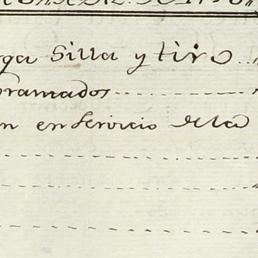 ga Silla y tiro
bramados
n en Servicio de la